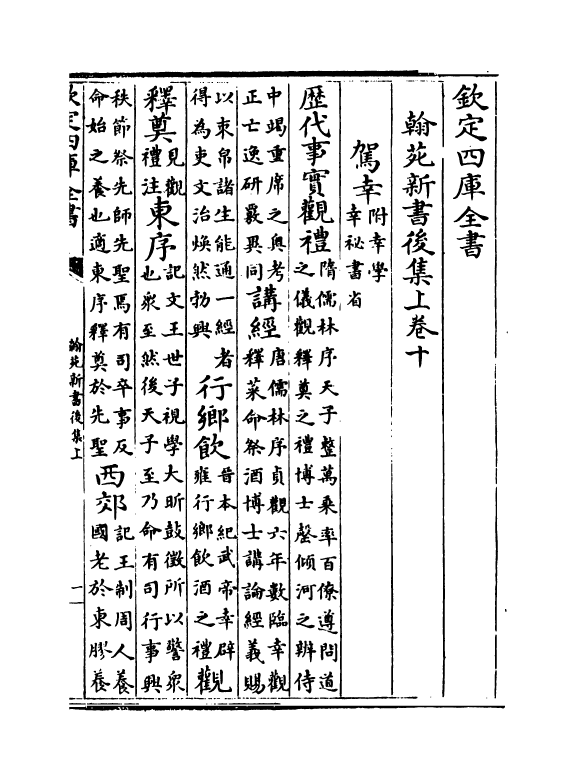 欽定四庫全書
翰苑新書後集上卷十
駕幸附幸學幸祕書省
歴代事實觀禮隋儒林序天子整萬乗率百僚遵問道之儀觀釋奠之禮博士罄傾河之辨侍
中竭重席之奥考正亡逸研覈異同講經唐儒林序貞觀六年數臨幸觀釋菜命祭酒博士講論經義賜
以束帛諸生能通一經者得為吏文治煥然勃興行鄉飲晉本紀武帝幸辟雍行鄉飲酒之禮觀
釋奠見觀禮注東序記文王世子視學大昕鼓徵所以警衆也衆至然後天子至乃命有司行事興
秩節祭先師先聖焉有司卒事反命始之養也適東序釋奠於先聖西郊記王制周人養國老於東膠養
欽定四庫全書
翰苑新書後集上
一